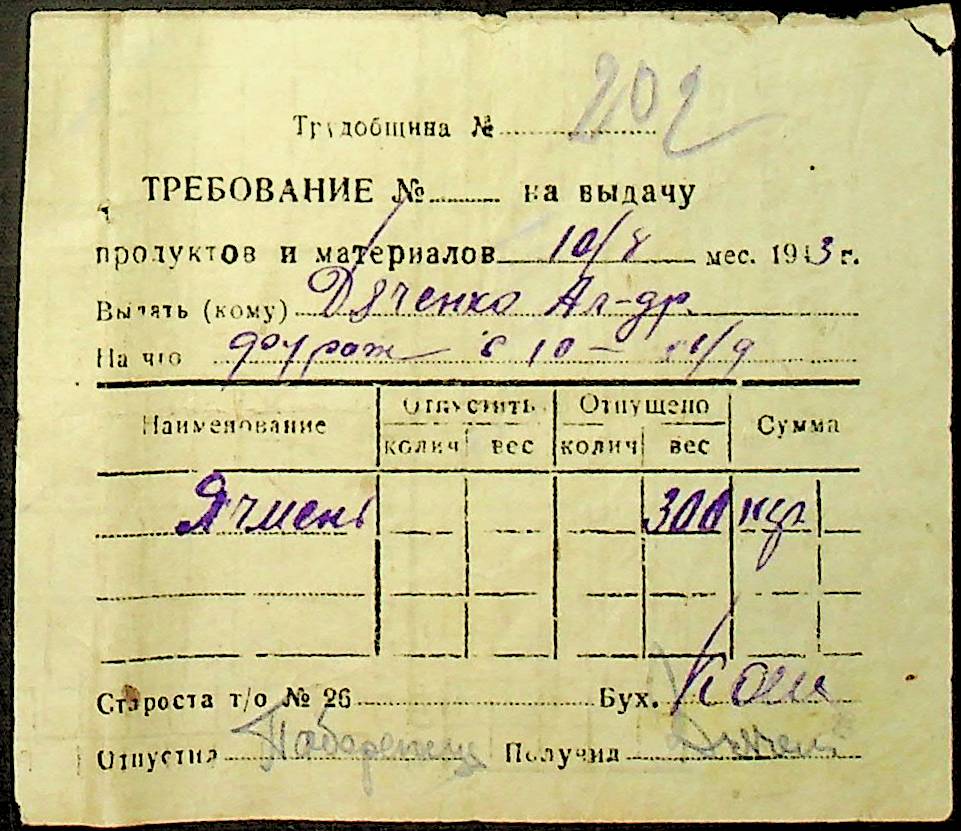 Трудобщина № 202
ТРЕБОВАНИЕ № на выдачу
продуктов и материалов 10/8 мес. 1943 г.
Выдать (кому) Дяченко Ал-др.
На что фураж с 10 –
Наименование Отпустить Отпущено Сумма
колич вес колич вес
Ячмень 300 кгр
Староста т/о № 26 Бух.
Отпустил Получил